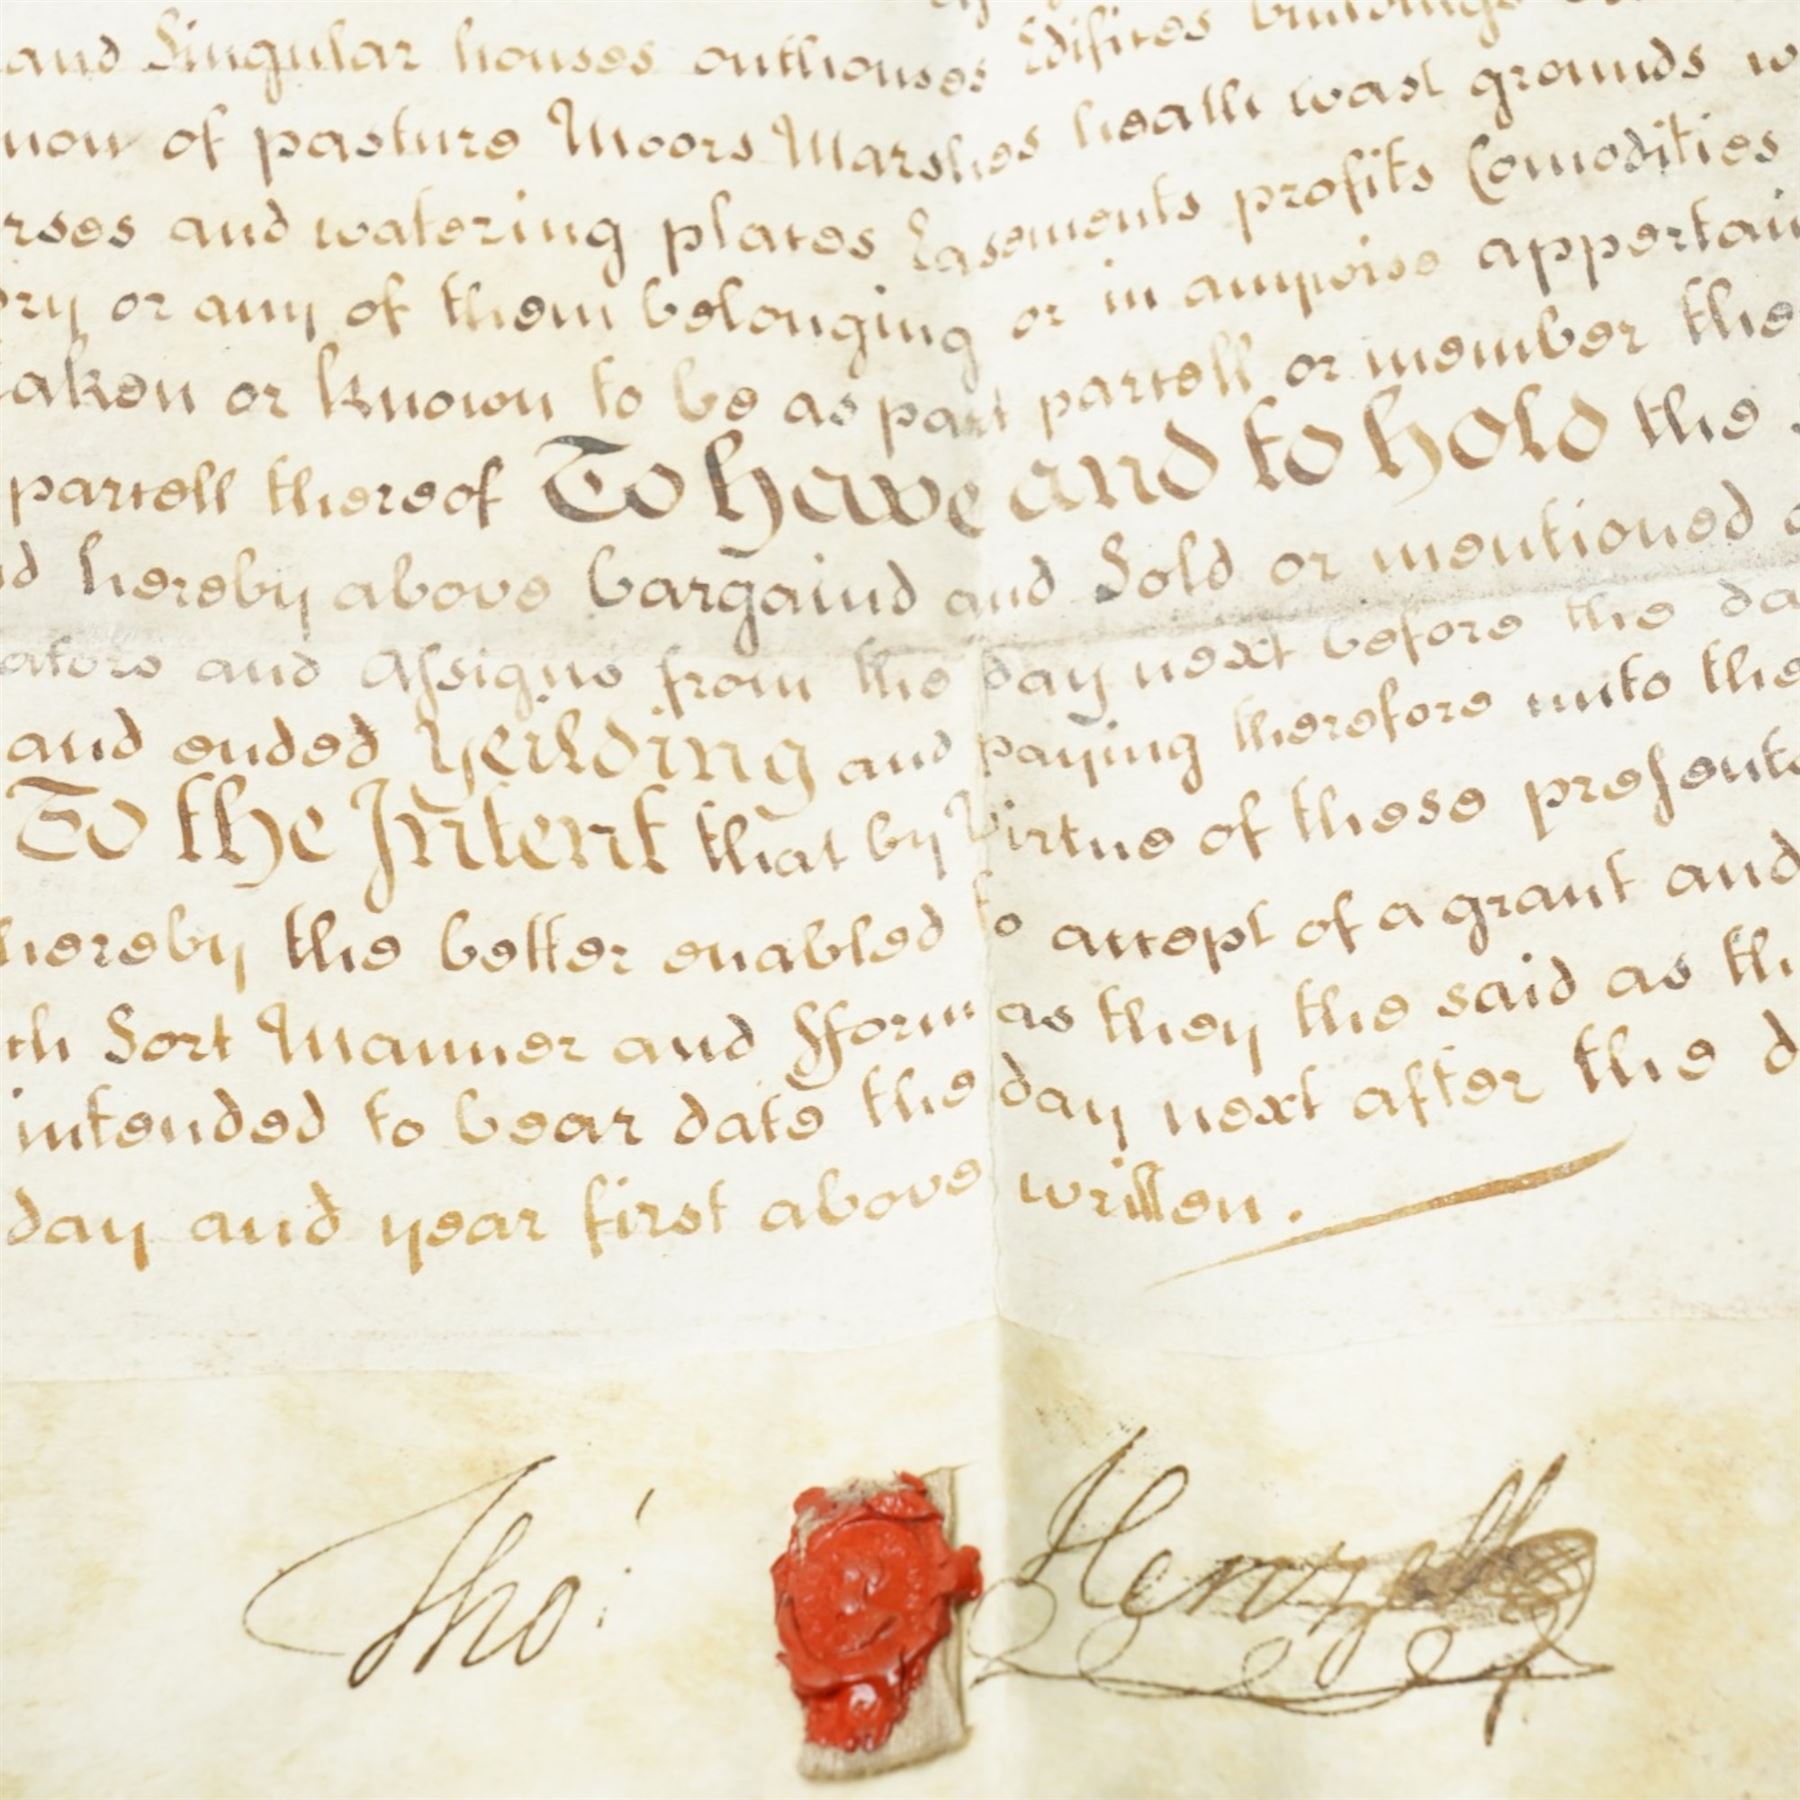 and Singular houses outhouses Edifices buildings
now of pasture Moors Marshes heath wast grounds w
rses and watering places Easements profits Comodities
ory or any of them belonging or in anywise appertain
aken or known to be as part parcell or member the
parcell thereof To have and to hold the
d hereby above bargaind and Sold or mentioned
ators and Assigns from the day next before the da
and ended Yeilding and paying therefore unto the
To the Intent that by Virtue of these presents
hereby the better enabled to accept of a grant and
ch Sort Manner and fform as they the said as th
intended to bear date the day next after the d
day and year first above written.
Tho: Henzell